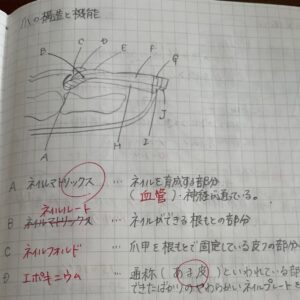 爪の構造と機能
C D E F G
B
J
A H I
A ネイルマトリックス … ネイルを育成する部分
(血管)・神経が通っている。
ネイルルート
B ネイルマトリックス … ネイルができる根もとの部分
C ネイルフォルド … 爪甲を根もとで固定している皮フの部分
D エポキニウム … 通称(あま皮)といわれている部
できたばかりのやわらかいネイルプレートを